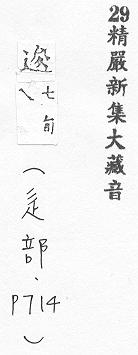 29精嚴新集大藏音
七旬
(辵部．P714)